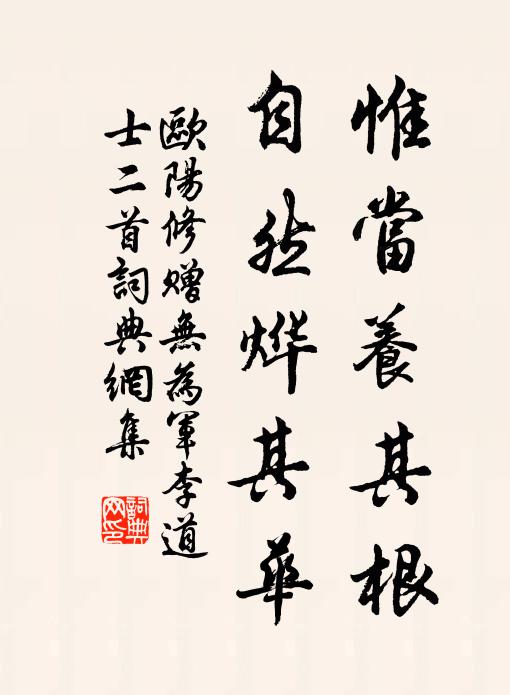 惟當養其根
自然燁其華
歐陽修贈無為軍李道
士二首詞典網集
詞典網印